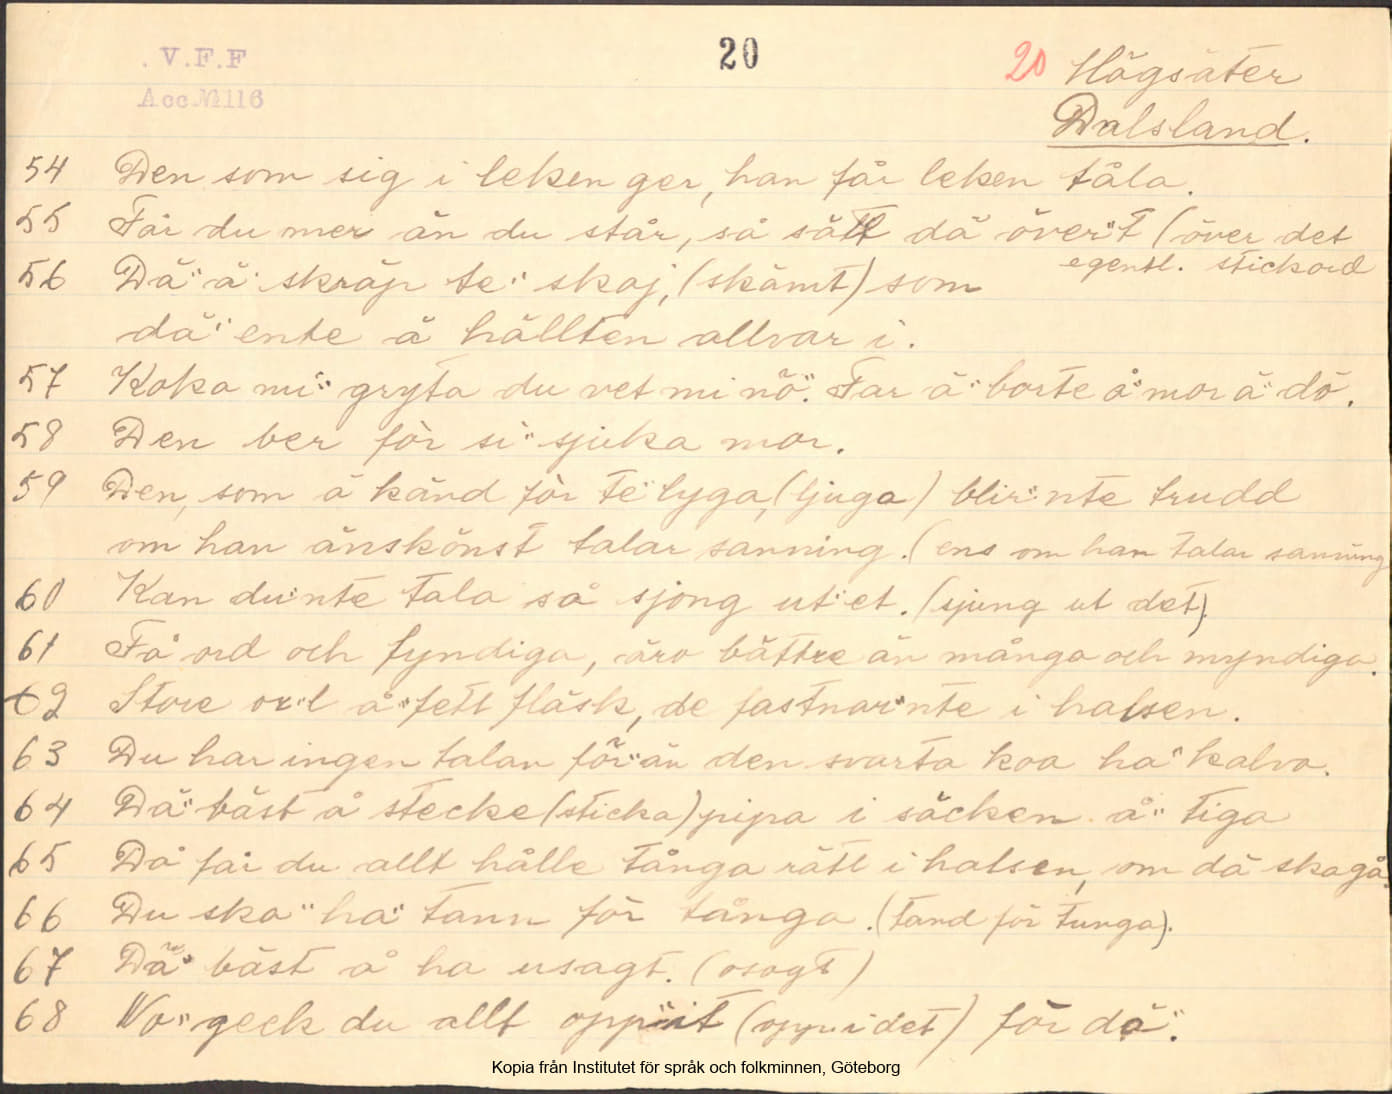 . V.F.F
20
20 Högsäter
Acc.№116
Dalsland.
54 Den som sig i leken ger, han får leken tåla.
55 Får du mer än du står, så sätt dä över"t (över det
egentl. stickord
56 Dä" ä" skräp te" skaj, (skämt) som
dä" ente ä hällten allvar i.
57 Koka mi" gryta du vet mi nö". Far ä" borte å" mor ä" dö.
58 Den ber för si" sjuka mor.
59 Den, som ä känd för te" lyga, (ljuga) blir"nte trudd
om han änskönst talar sanning. (ens om han talar sanning
60 Kan du"nte tala så sjong ut"et. (sjung ut det).
61 Få ord och fyndiga, äro bättre än många och myndiga.
62 Store ol"l å" fett fläsk, de fastnar"nte i halsen.
63 Du har ingen talan för"än den svarta koa ha" kalva.
64 Dä" bäst å stecke (sticka) pipa i säcken å" tiga
65 Då får du allt hålle tånga rätt i halsen, om dä ska gå.
66 Du ska" ha" tann för tånga. (tand för tunga).
67 Dä" bäst å ha usagt. (osagt)
68 No" geck du allt opp"it (opp i det) för dä".
Kopia från Institutet för språk och folkminnen, Göteborg